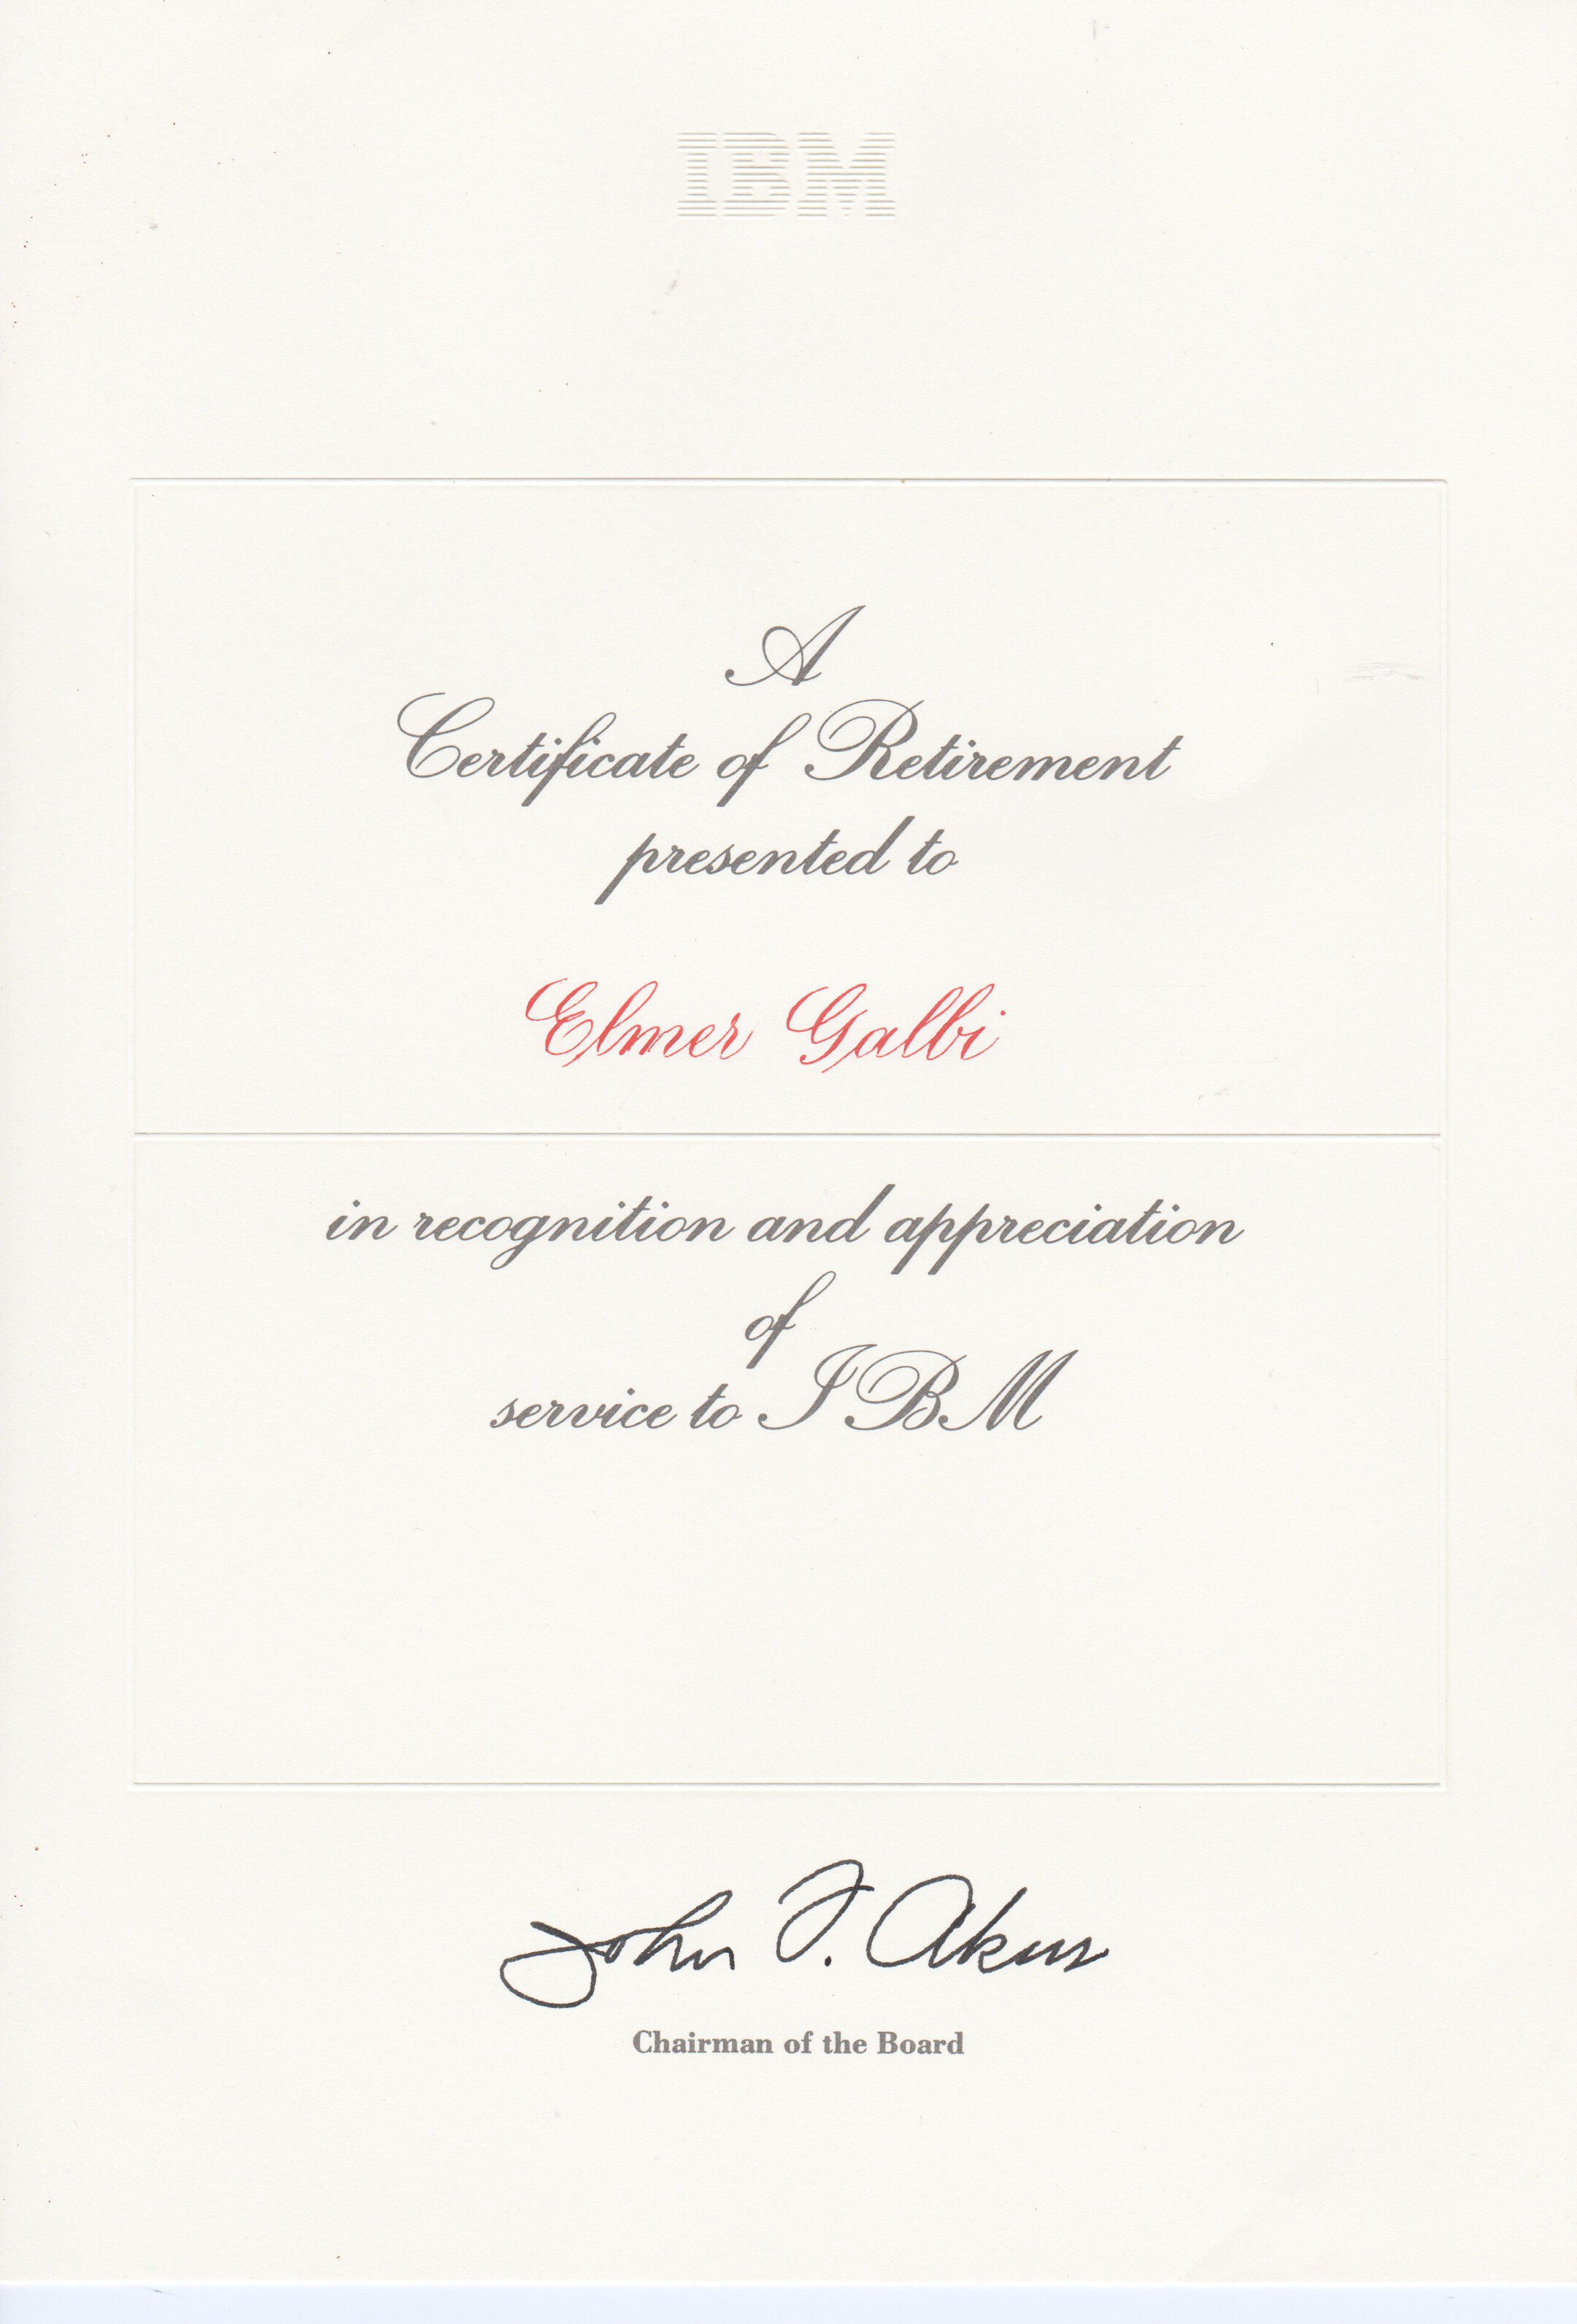 IBM
A
Certificate of Retirement
presented to
Elmer Galbi
in recognition and appreciation
of
service to IBM
John F. Akers
Chairman of the Board